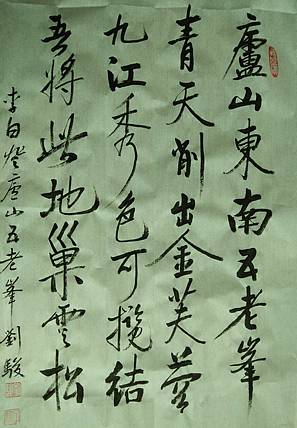 廬山東南五老峯
青天削出金芙蓉
九江秀色可攬結
吾將此地巢雲松
李白登廬山五老峯 劉駿